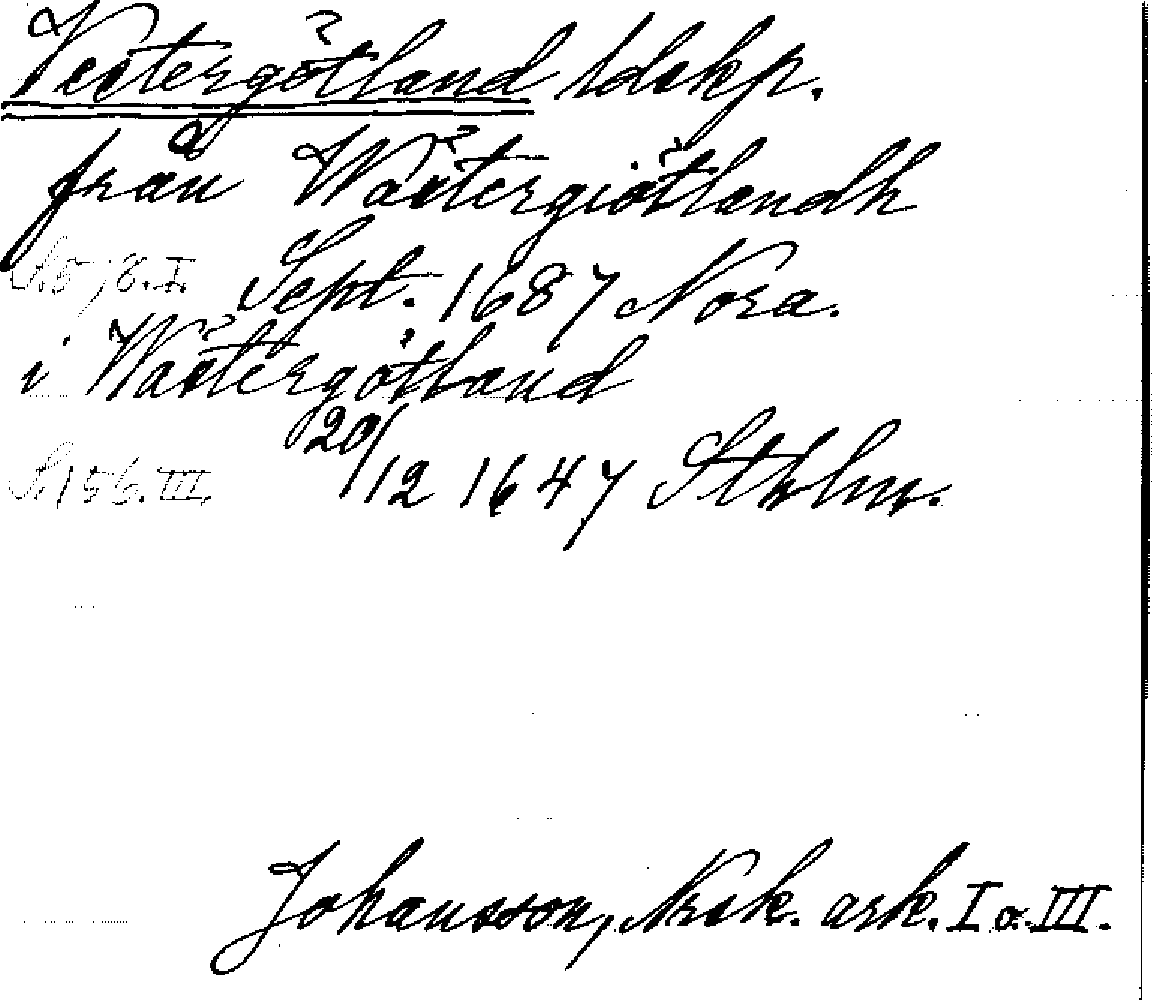 Vestergötland ldskp.
från Wästergiötlandh
S. 578. I. Sept. 1687 Nora.
i Wästergötland
S. 156. III. 20/12 1647 Sthlm.
Johansson, Norsk. ark. I o. III.